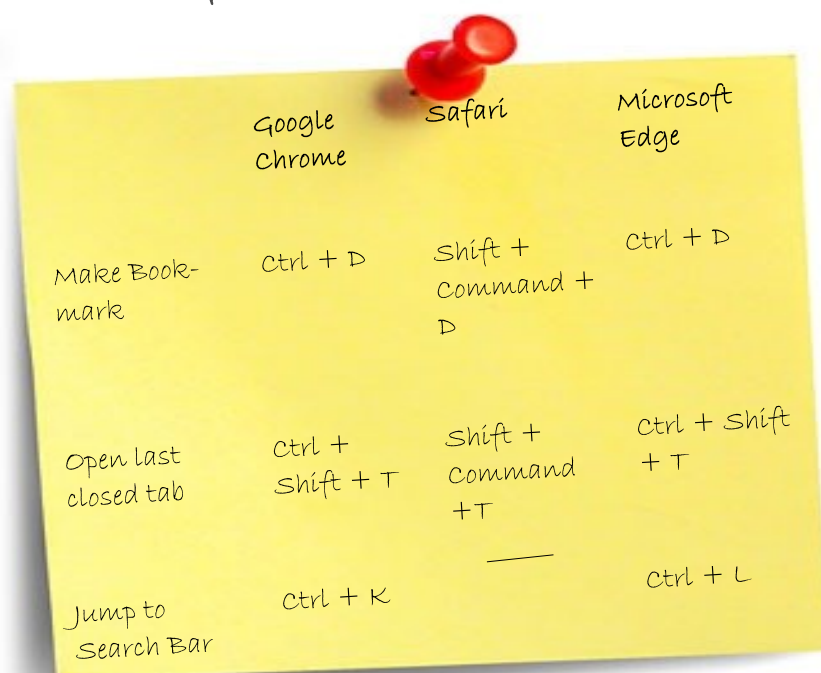 Google
Chrome
Safari
Microsoft
Edge
Make Book-
mark
Ctrl + D
Shift +
Command +
D
Ctrl + D
Open last
closed tab
Ctrl +
Shift + T
Shift +
Command
+T
Ctrl + Shift
+ T
Jump to
Search Bar
Ctrl + K
Ctrl + L